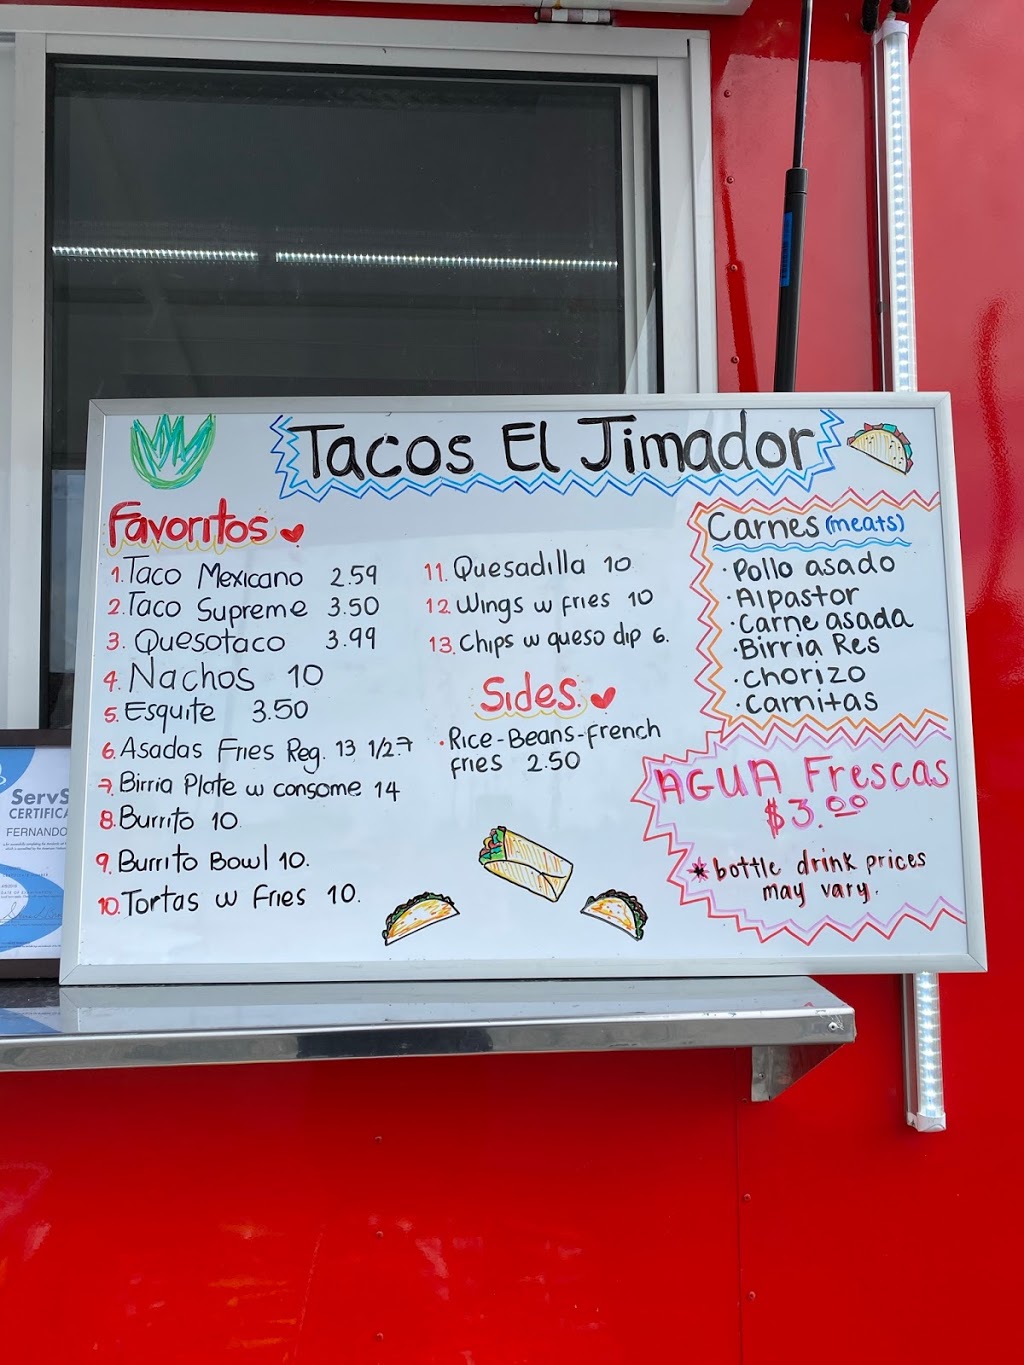 Tacos El Jimador
Favoritos
1. Taco Mexicano 2.59
2. Taco Supreme 3.50
3. Quesotaco 3.99
4. Nachos 10
5. Esquite 3.50
6. Asadas Fries Reg. 13 1/2 7
7. Birria Plate w consome 14
8. Burrito 10
9. Burrito Bowl 10.
10. Tortas w fries 10.
11. Quesadilla 10
12 Wings w fries 10
13. Chips w queso dip 6.
Sides
· Rice-Beans-french
fries 2.50
Carnes (meats)
· Pollo asado
· Alpastor
· Carne asada
· Birria Res
· Chorizo
· Carnitas
AGUA Frescas
$3.00
* bottle drink prices
may vary.
ServS
CERTIFICA
FERNANDO